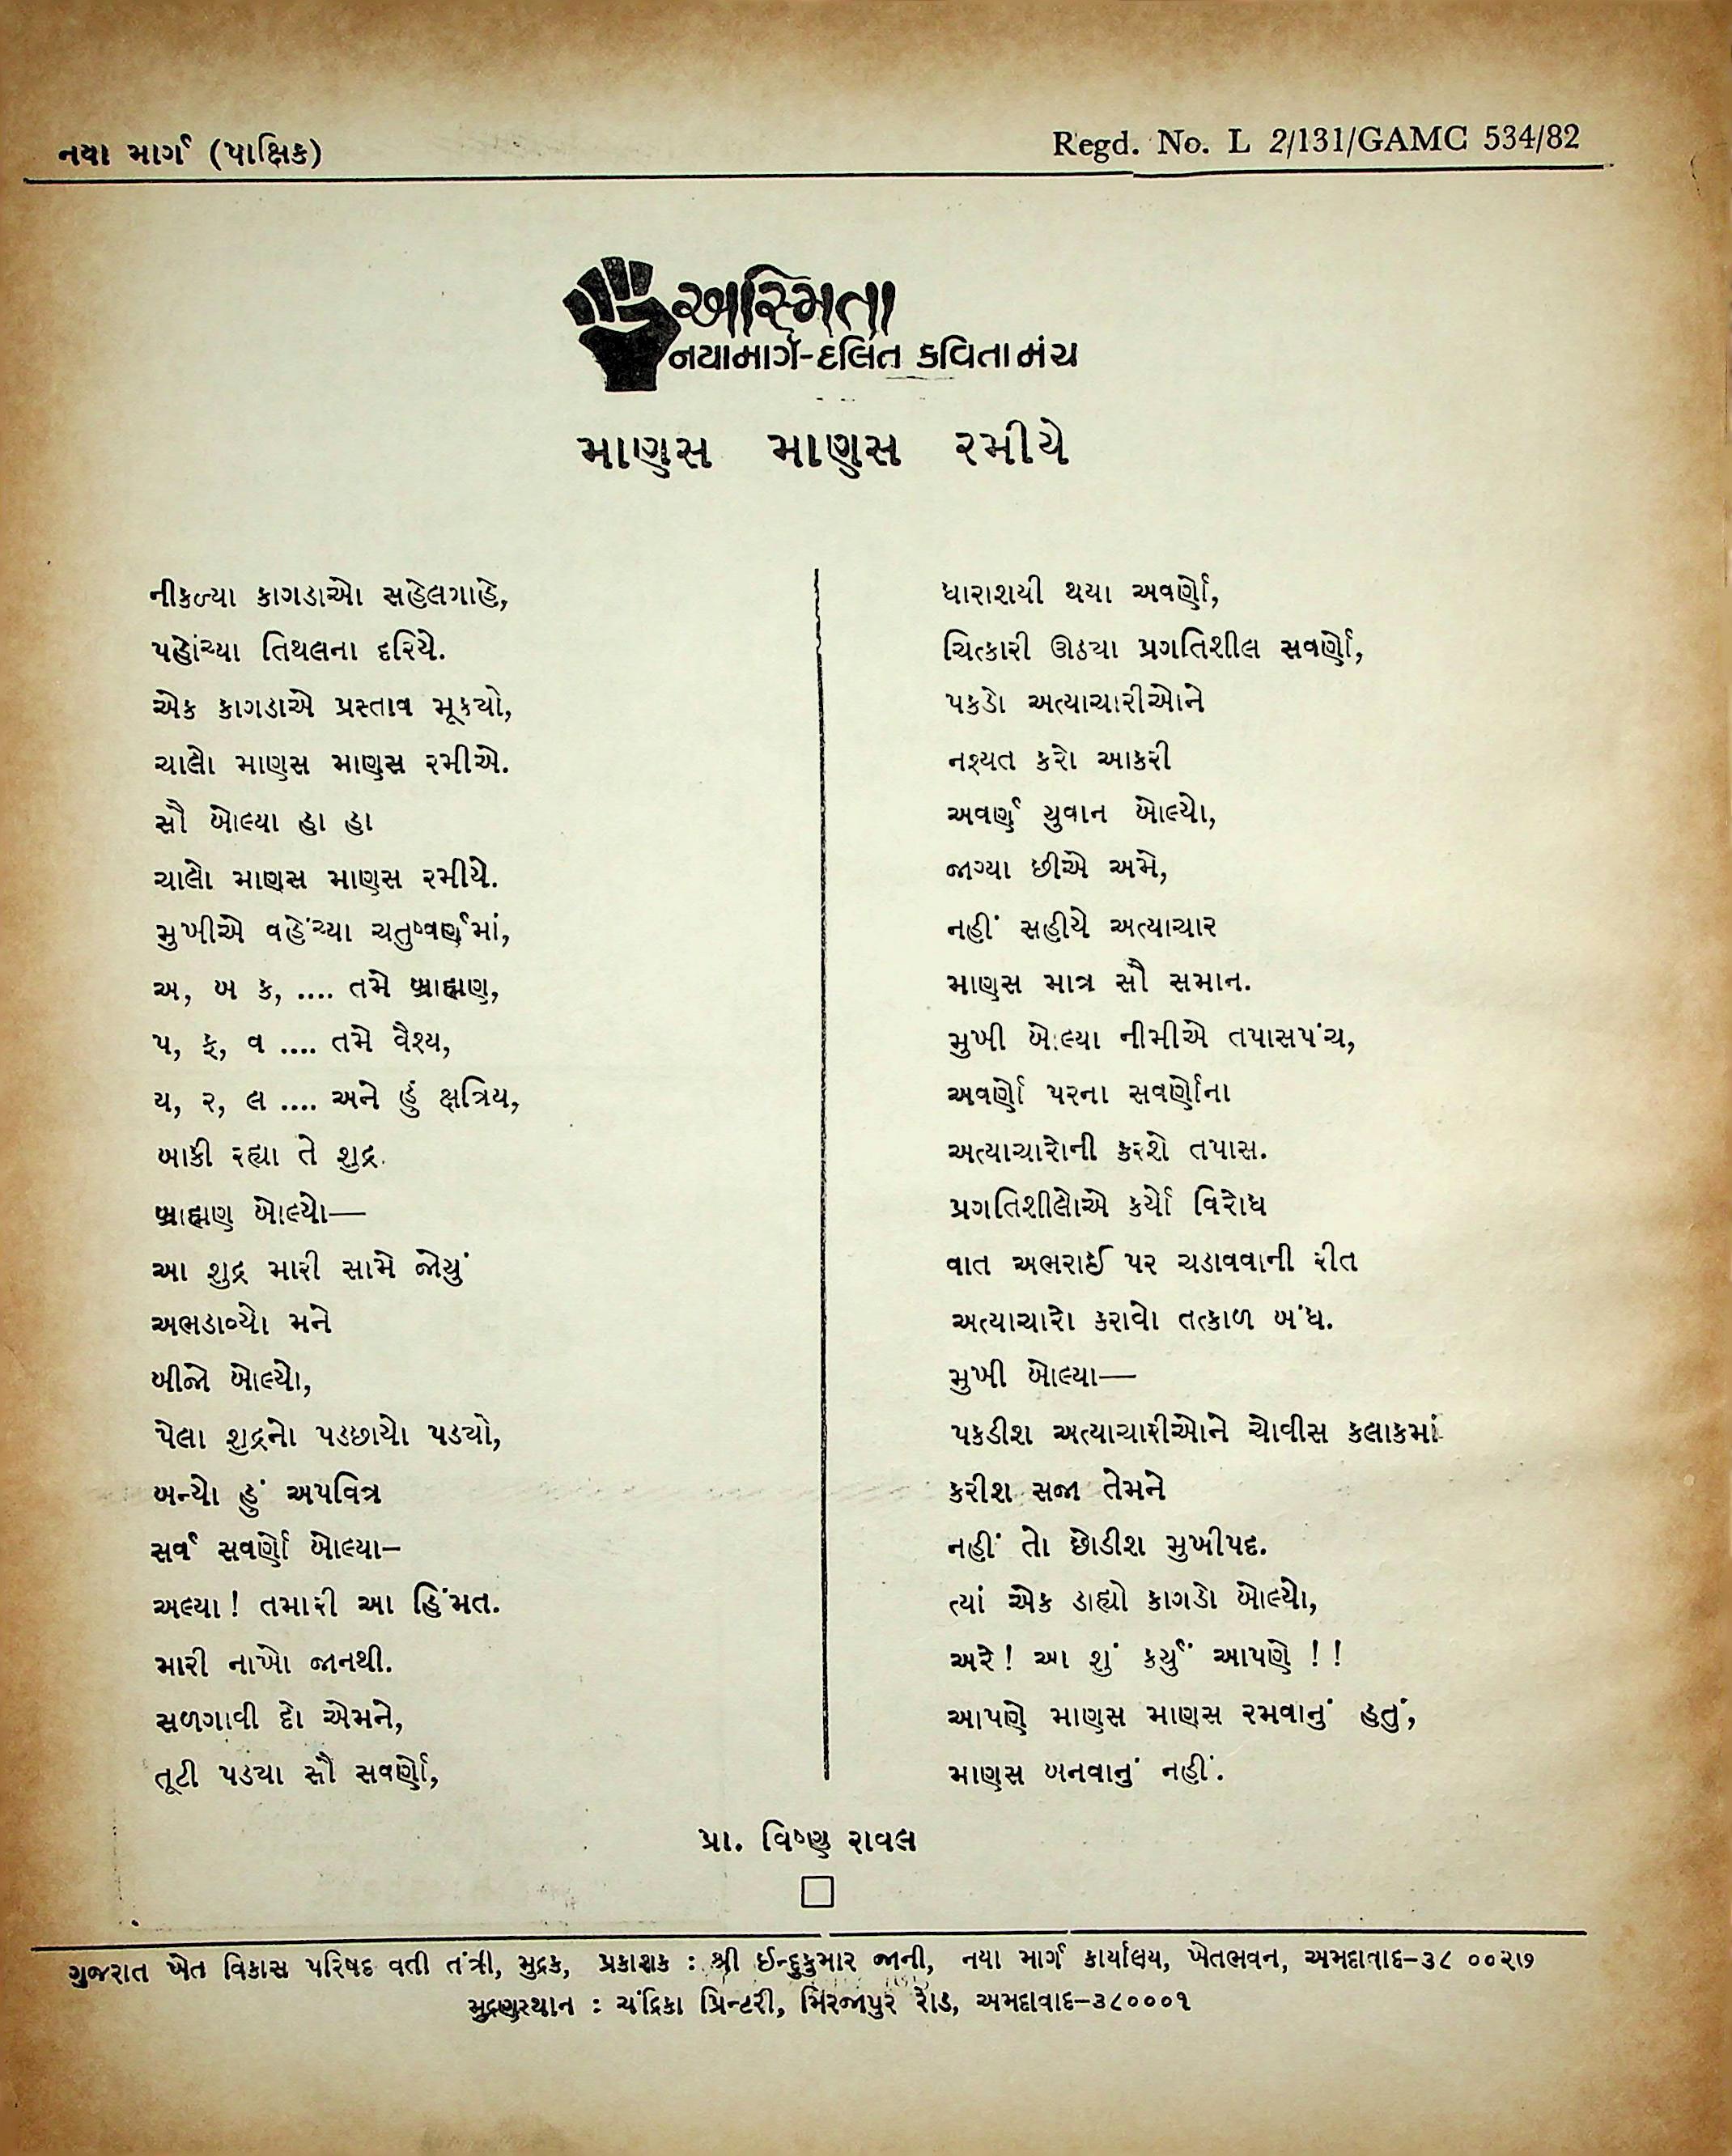 નયા માર્ગ (પાક્ષિક)
Regd. No. L 2/131/GAMC 534/82
અસ્મિતા
નયામાર્ગ-દલિત કવિતા મંચ
માણસ માણસ રમીયે
નીકળ્યા કાગડાઓ સહેલગાહે,
પહોંચ્યા તિથલના દરિયે.
એક કાગડાએ પ્રસ્તાવ મૂક્યો,
ચાલો માણસ માણસ રમીએ.
સૌ બોલ્યા હા હા
ચાલો માણસ માણસ રમીયે.
મુખીએ વહેંચ્યા ચતુષ્વર્ણમાં,
અ, બ ક, .... તમે બ્રાહ્મણ,
પ, ફ, વ .... તમે વૈશ્ય,
ય, ર, લ .... અને હું ક્ષત્રિય,
બાકી રહ્યા તે શુદ્ર.
બ્રાહ્મણ બોલ્યો—
આ શુદ્ર મારી સામે જોયું
અભડાવ્યો મને
બીજો બોલ્યો,
પેલા શુદ્રનો પડછાયો પડ્યો,
બન્યો હું અપવિત્ર
સર્વ સવર્ણો બોલ્યા–
અલ્યા! તમારી આ હિંમત.
મારી નાખો જાનથી.
સળગાવી દો એમને,
તૂટી પડ્યા સૌ સવર્ણો,
ધારાશયી થયા અવર્ણો,
ચિત્કારી ઊઠયા પ્રગતિશીલ સવર્ણો,
પકડો અત્યાચારીઓને
નશ્યત કરો આકરી
અવર્ણ યુવાન બોલ્યો,
જાગ્યા છીએ અમે,
નહીં સહીયે અત્યાચાર
માણસ માત્ર સૌ સમાન.
મુખી બોલ્યા નીમીએ તપાસપંચ,
અવર્ણો પરના સવર્ણોના
અત્યાચારોની કરશે તપાસ.
પ્રગતિશીલોએ કર્યો વિરોધ
વાત અભરાઈ પર ચડાવવાની રીત
અત્યાચારો કરાવો તત્કાળ બંધ.
મુખી બોલ્યા—
પકડીશ અત્યાચારીઓને ચોવીસ કલાકમાં
કરીશ સજા તેમને
નહીં તો છોડીશ મુખીપદ.
ત્યાં એક ડાહ્યો કાગડો બોલ્યો,
અરે! આ શું કર્યું આપણે !!
આપણે માણસ માણસ રમવાનું હતું,
માણસ બનવાનું નહીં.
પ્રા. વિષ્ણુ રાવલ
ગુજરાત ખેત વિકાસ પરિષદ વતી તંત્રી, મુદ્રક, પ્રકાશક : શ્રી ઈન્દુકુમાર જાની, નયા માર્ગ કાર્યાલય, ખેતભવન, અમદાવાદ–૩૮ ૦૦૨૭
મુદ્રણસ્થાન : ચંદ્રિકા પ્રિન્ટરી, મિરજાપુર રોડ, અમદાવાદ–૩૮૦૦૦૧